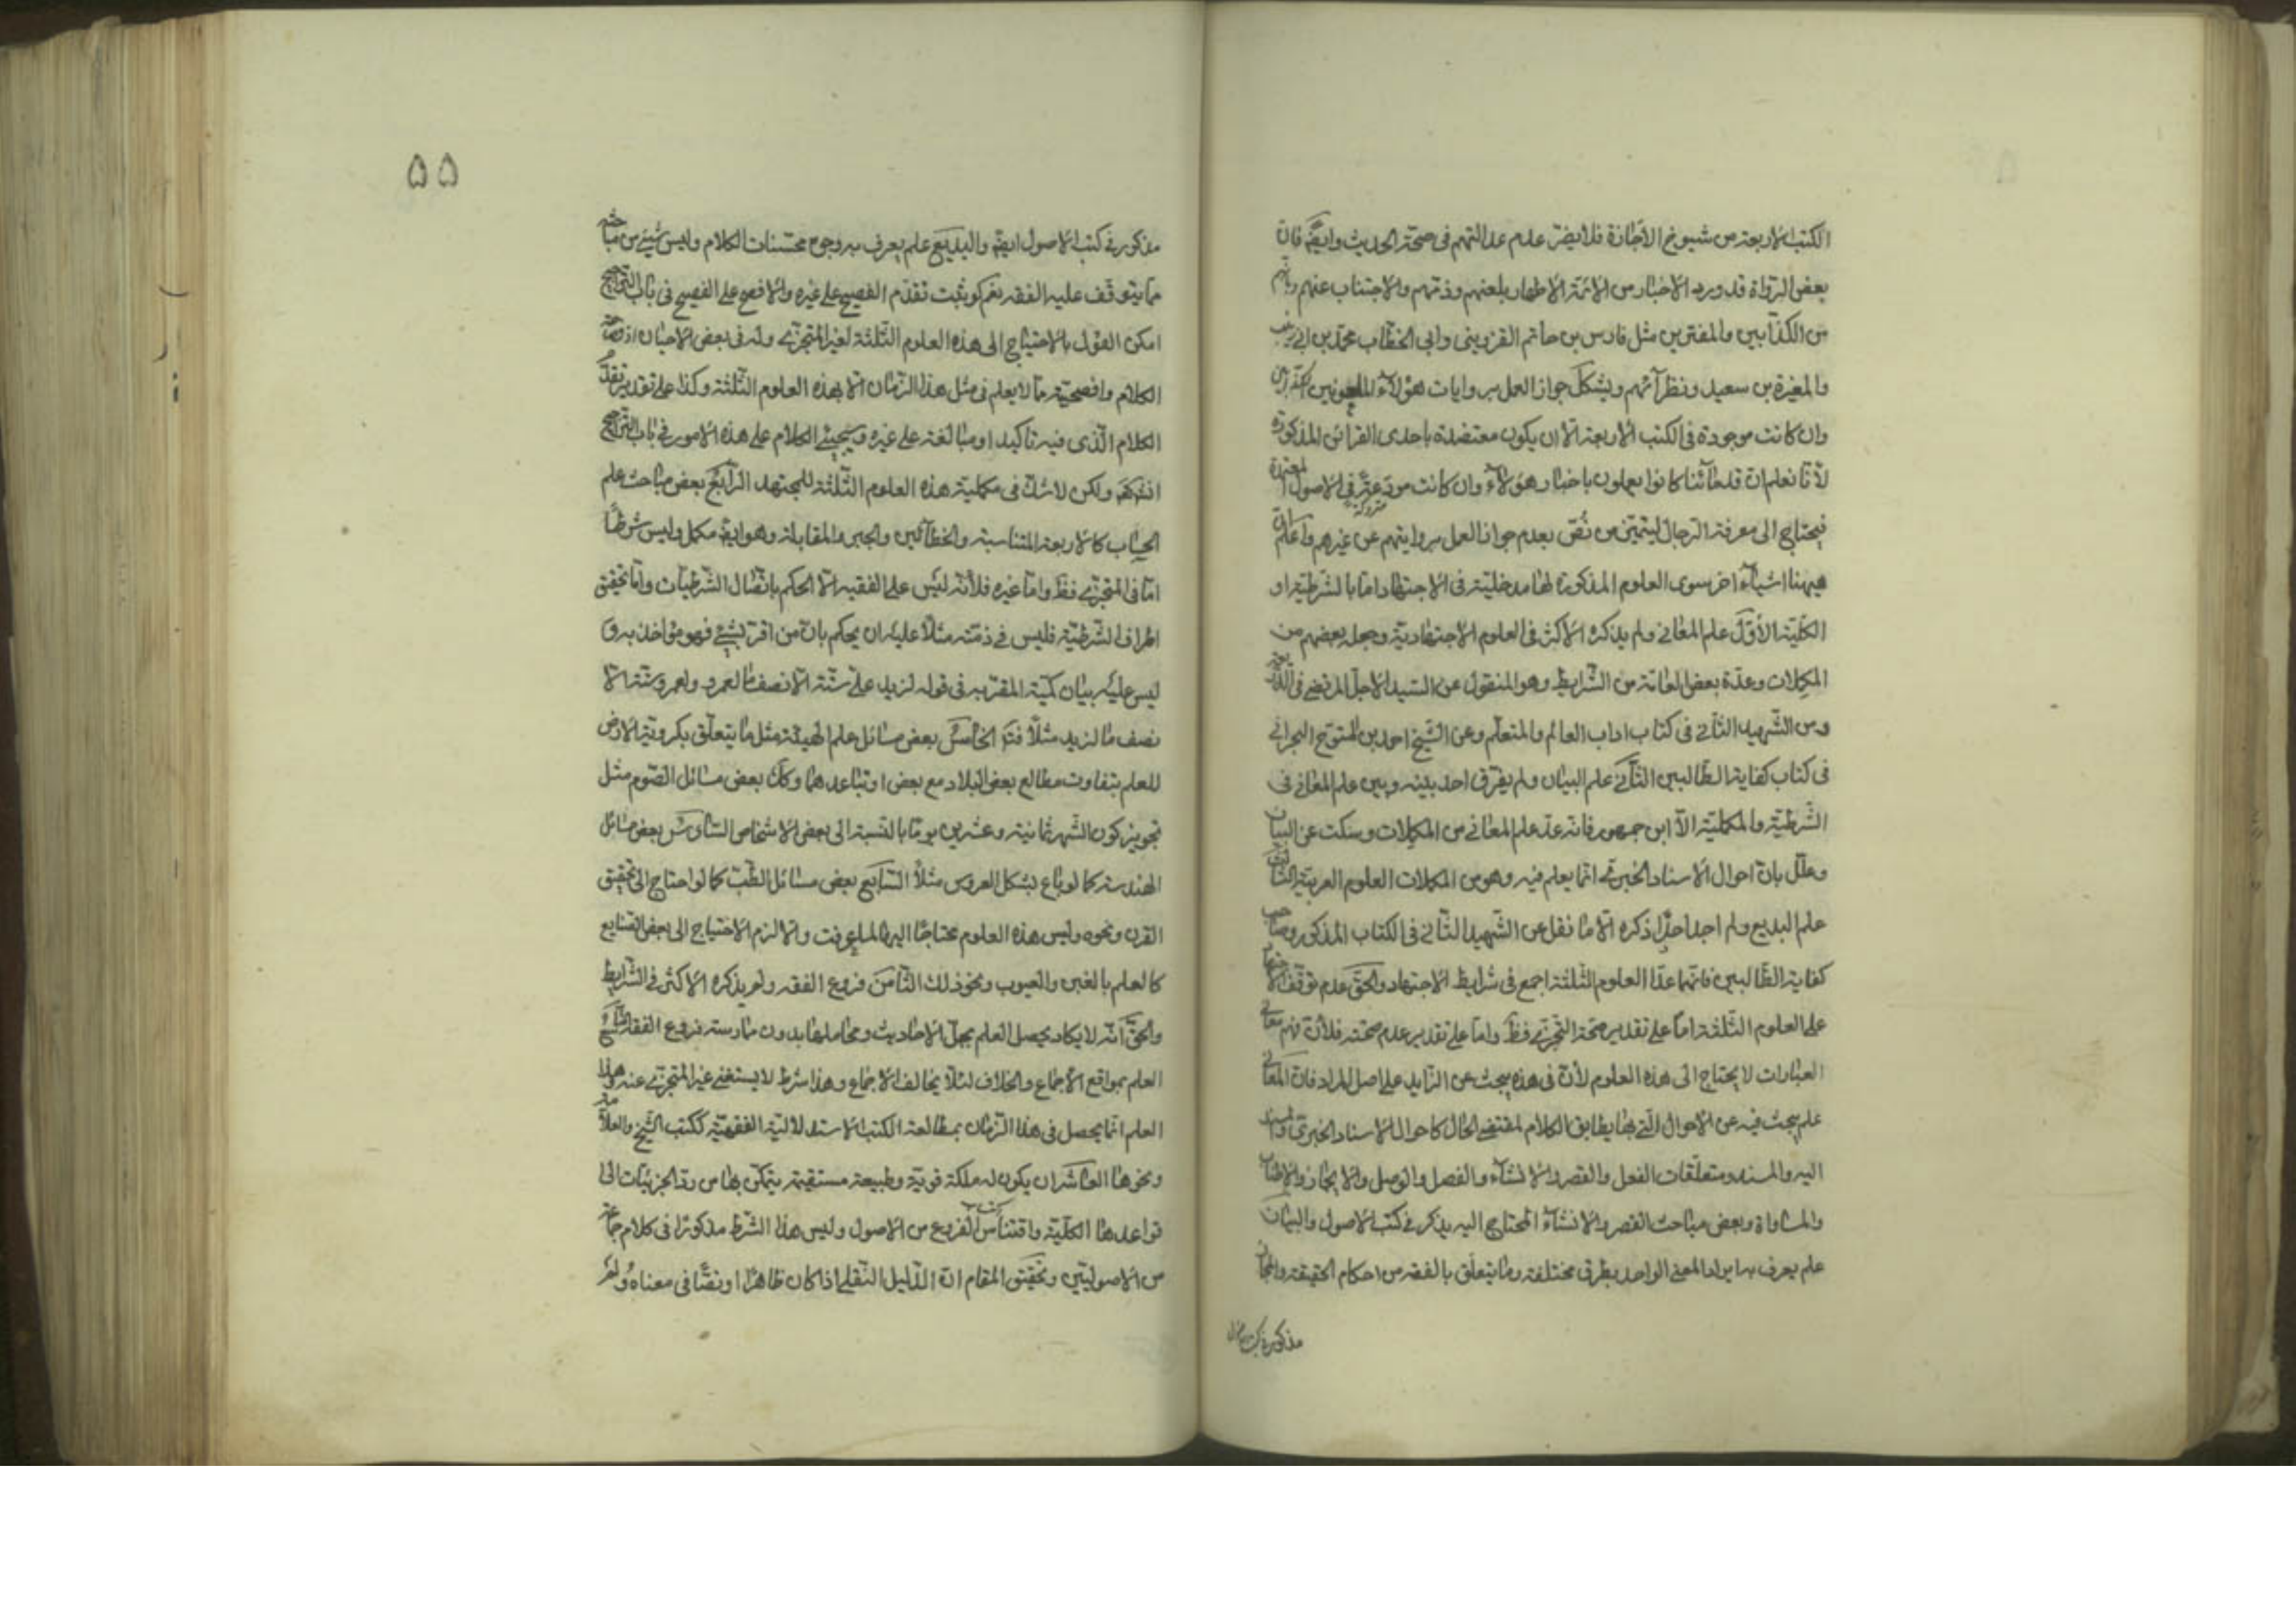 الكتب الاربعة من شيوخ الاجازة فلا يضر عدم عدالتهم فى صحة الحديث وايضا فان
بعض الرواة قد ورد الاخبار من الائمة الاطهار بلعنهم وذمهم والاجتناب عنهم وبانهم
من الكذابين والمفترين مثل فارس بن حاتم القزوينى وابى الخطاب محمد بن ابى زينب
والمغيرة بن سعيد ونظرآئهم ويشكل جواز العمل بروايات هؤلآء الملعونين
وان كانت موجودة فى الكتب الاربعة الا ان يكون معتضدة باحدى القرائن المذكورة
لأنا نعلم ان قدمآئنا كانوا يعملون باخبار هؤلآء وان كانت فى الاصول المعتبرة
فيحتاج الى معرفة الرجال ليتميز من نص بعدم جواز العمل بروايتهم عن غيرهم واعلم ان
هيهنا اشيآء اخر سوى العلوم المذكورة لها مدخلية فى الاجتهاد اما بالشرطية او
الكلية الأول علم المعانى ولم يذكره الاكثر فى العلوم الاجتهادية وجعله بعضهم من
المكملات وعده بعض العامة من الشرايط وهو المنقول عن السيد الاجل المرتضى فى الذريعة
ومن الشهيد الثانى فى كتاب اداب العالم والمتعلم وعن الشيخ احمد بن المتوج البحرانى
فى كتاب كفاية الطالبين الثانى علم البيان ولم يفرق احد بينه وبين علم المعانى فى
الشرطية والمكملية الا ابن جمهور فانه عد علم المعانى من المكملات وسكت عن البيان
وعلل بان احوال الاسناد الخبرى انما يعلم فيه وهو من المكملات العلوم العربية الثالث
علم البديع ولم اجد احدا ذكره الا ما نقل عن الشهيد الثانى فى الكتاب المذكور وصاحب
كفاية الطالبين فانهما عدا العلوم الثلثة اجمع فى شرايط الاجتهاد والحق عدم توقف الاجتهاد
على العلوم الثلثة اما على تقدير صحة التجزى فظ واما على تقدير عدم صحته فلأن فهم معانى
العبارات لا يحتاج الى هذه العلوم لأن فى هذه يبحث عن الزايد على اصل المراد فان المعانى
علم يبحث فيه عن الاحوال التى بها يطابق الكلام لمقتضى الحال كاحوال الاسناد الخبرى والمسند
اليه والمسند ومتعلقات الفعل والقصر والانشآء والفصل والوصل والايجاز والاطناب
والمساواة وبعض مباحث القصر والانشآء المحتاج اليه يذكر فى كتب الاصول والبيان
علم يعرف به ايراد المعنى الواحد بطرق مختلفة وما يتعلق بالفقه من احكام الحقيقة والمجاز
مذكور فى كتب الاصول
٥٥
مذكور فى كتب الاصول ايضا والبديع علم يعرف به وجوه محسنات الكلام وليس شيئ من مباحثه
مما يتوقف عليه الفقه نعم لو ثبت تقدم الفصيح على غيره والافصح على الفصيح فى باب التراجيح
امكن القول بالاحتياج الى هذه العلوم الثلثة لغير المتجزى وله فى بعض الاحيان اذ فصاحة
الكلام وافصحيته مما لا يعلم فى مثل هذا الزمان الا بهذه العلوم الثلثة وكذا على تقدير تقدم
الكلام الذى فيه تاكيد او مبالغة على غيره وسيجيئ الكلام على هذه الامور فى باب التراجيح
انشآء الله ولكن لا شك فى مكملية هذه العلوم الثلثة للمجتهد الرابع بعض مباحث علم
الحساب كالاربعة المتناسبة والخطآئين والجبر والمقابلة وهو ايضا مكمل وليس شرطا
اما فى المتجزى فظ واما غيره فلأنه ليس على الفقيه الا الحكم باتصال الشرطيات واما تحقيق
اطراف الشرطية فليس فى ذمته مثلا عليه ان يحكم بان من اقر بشيئ فهو مؤاخذ به و
ليس عليه بيان كمية المقر به فى قوله لزيد على ستة الا نصف ما لعمرو ولعمرو ستة الا
نصف ما لزيد مثلا فتم الخامس بعض مسائل علم الهيئة مثل ما يتعلق بكروية الارض
للعلم بتفاوت مطالع بعض البلاد مع بعض او تباعدهما وكذا بعض مسائل الصوم مثل
تجويز كون الشهر ثمانية وعشرين يوما بالنسبة الى بعض الاشخاص السادس بعض مسائل
الهندسة كما لو باع بشكل العروس مثلا السابع بعض مسائل الطب كما لو احتاج الى تحقيق
القرن ونحوه وليس هذه العلوم محتاجا اليها لما عرفت والا لزم الاحتياج الى بعض الصنايع
كالعلم بالغبن والعيوب ونحو ذلك الثامن فروع الفقه ولم يذكره الاكثر فى الشرايط
والحق انه لا يكاد يحصل العلم بحل الاحاديث ومحاملها بدون ممارسة فروع الفقه التاسع
العلم بمواقع الاجماع والخلاف لئلا يخالف الاجماع وهذا شرط لا يستغنى غير المتجزى عنه وهذا
العلم انما يحصل فى هذا الزمان بمطالعة الكتب الاستدلالية الفقهية ككتب الشيخ والعلامة
ونحوها العاشر ان يكون له ملكة قوية وطبيعة مستقيمة يتمكن بها من رد الجزئيات الى
قواعدها الكلية واقتناص الفروع من الاصول وليس هذا الشرط مذكورا فى كلام جماعة
من الاصوليين وتحقيق المقام ان الدليل النقلى اذا كان ظاهرا او نصا فى معناه ولم